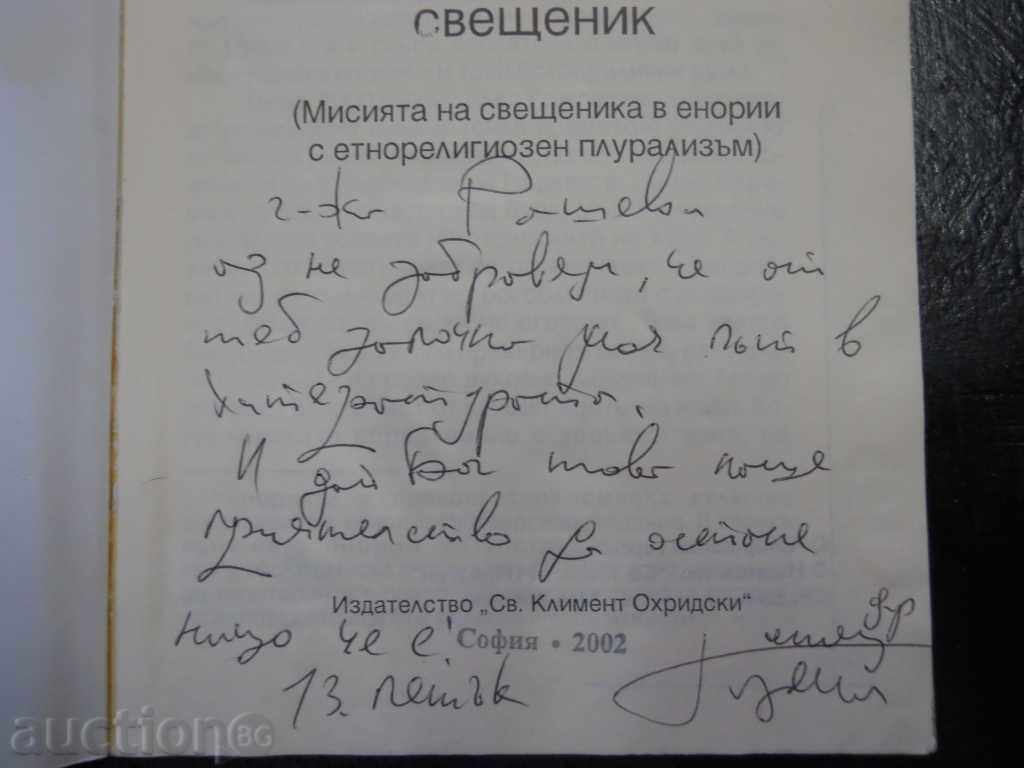 свещеник
(Мисията на свещеника в енории
с етнорелигиозен плурализъм)
г-жа Рашева
аз не забравям, че от
теб започна моя път в
литературата.
И дай Бог това наше
приятелство да остане
Издателство „Св. Климент Охридски“
нищо че е!
София • 2002
13. петък
auction BG